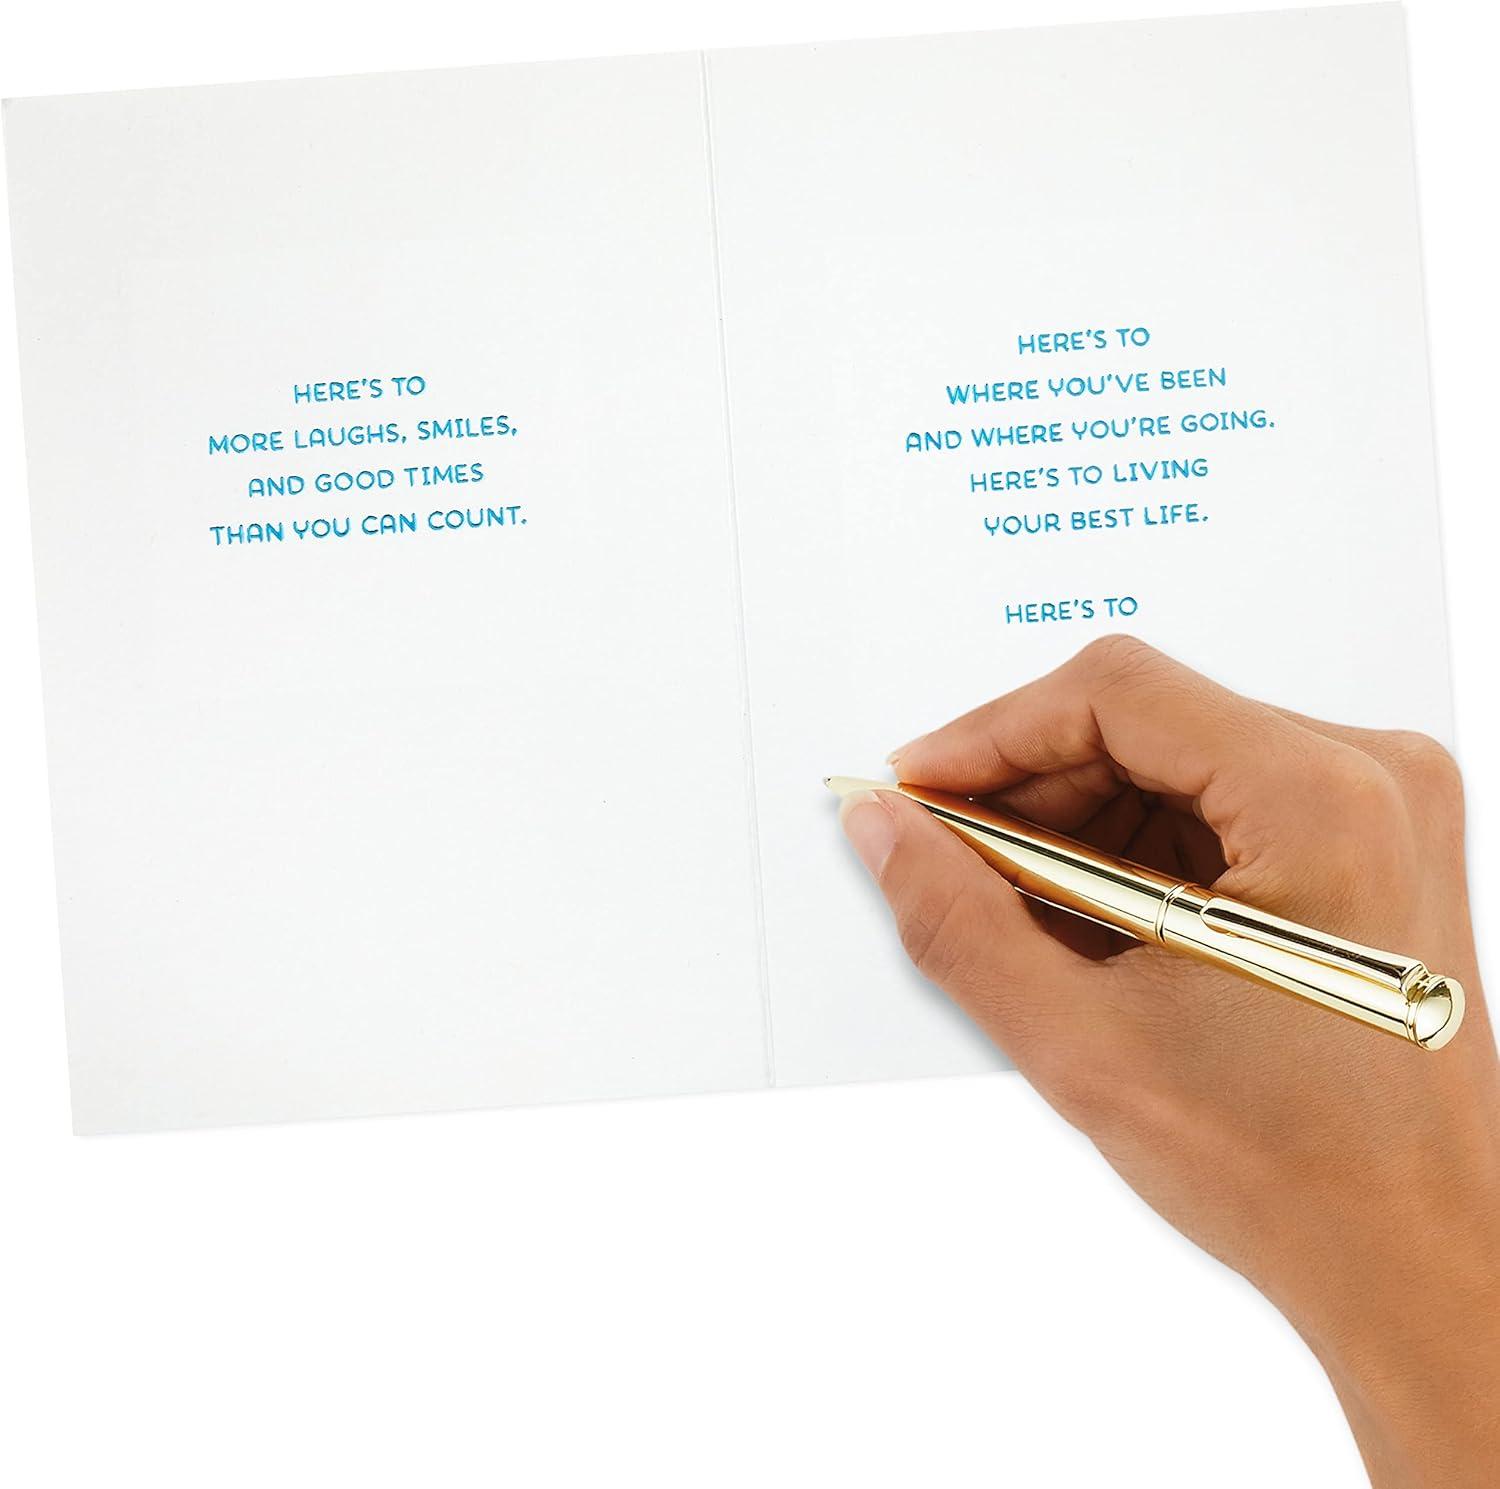 HERE'S TO
MORE LAUGHS, SMILES,
AND GOOD TIMES
THAN YOU CAN COUNT.
HERE'S TO
WHERE YOU'VE BEEN
AND WHERE YOU'RE GOING.
HERE'S TO LIVING
YOUR BEST LIFE.
HERE'S TO